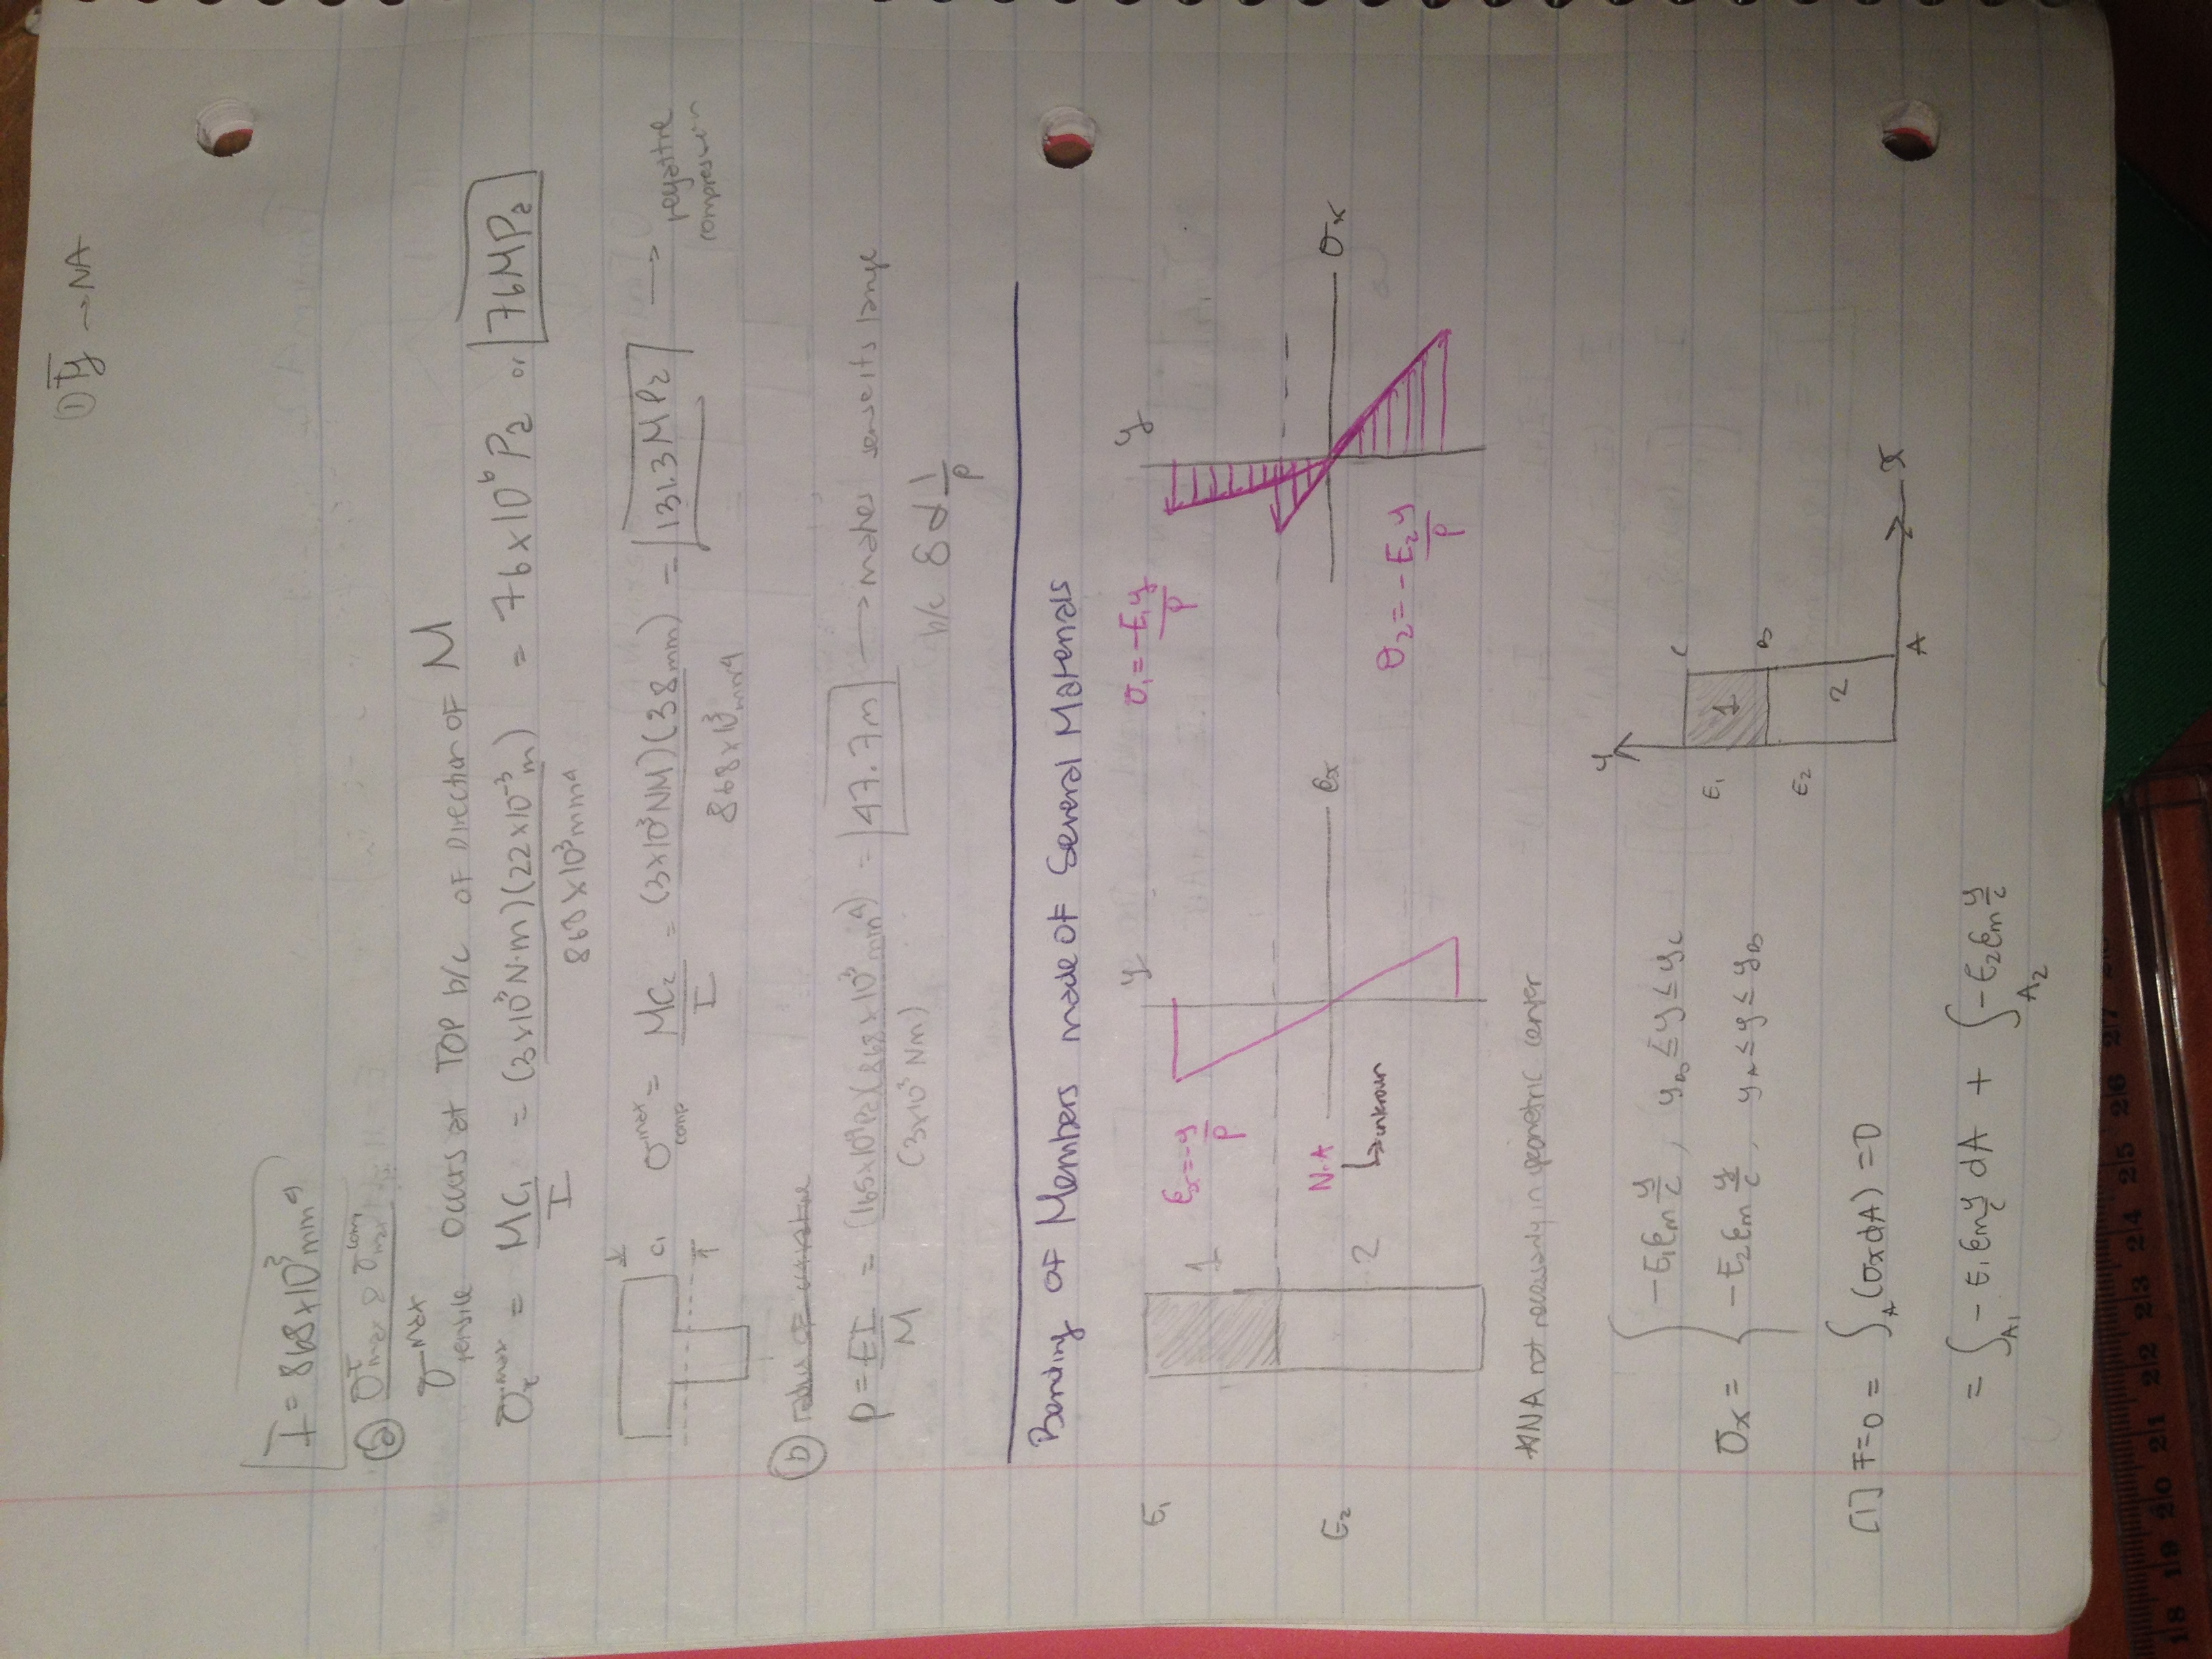 ① ȳ → NA
I = 868x10³mm⁴
ⓐ σᵀmax & σmax^comp
σ^max tensile occurs at TOP b/c of Direction of M
σt^max = MC₁/I = (3x10³N·m)(22x10⁻³m)/868x10³mm⁴ = 76x10⁶Pa or 76MPa
C₁
σcomp^max = MC₂/I = (3x10³NM)(38mm)/868x10³mm⁴ = 131.3MPa → negative compression
ⓑ radius of curvature
ρ = EI/M = (165x10⁹Pa)(868x10³mm⁴)/(3x10³Nm) = 47.7m → makes sense its large
b/c δ α 1/ρ
Bending of Members made of Several Materials
E₁ 1 ϵx=-y/ρ y σ₁=-E₁y/ρ y
E₂ 2 N.A ϵx σ₂=-E₂y/ρ σx
↳unknown
*NA not necessarily in geometric center
σx = { -E₁ϵm y/c , yB≤y≤yC
-E₂ϵm y/c , yA≤y≤yB
y E₁ 1 C
B
E₂ 2
A x
[1] F=0 = ∫A (σxdA) =0
= ∫A₁ -E₁ϵm y/c dA + ∫A₂ -E₂ϵm y/c
18 19 20 21 22 23 24 25 26 27